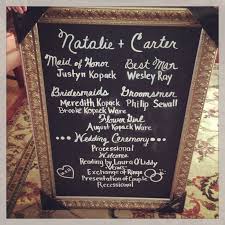 Natalie + Carter
Maid of Honor Best Man
Justyn Kopack Wesley Ray
Bridesmaids Groomsmen
Meredith Kopack Philip Sewall
Brooke Kopack Ware
Flower Girl
August Kopack Ware
Wedding Ceremony
Processional
Welcome
Reading by Laura O'Liddy
Vows
Exchange of Rings
Presentation of Couple
Recessional